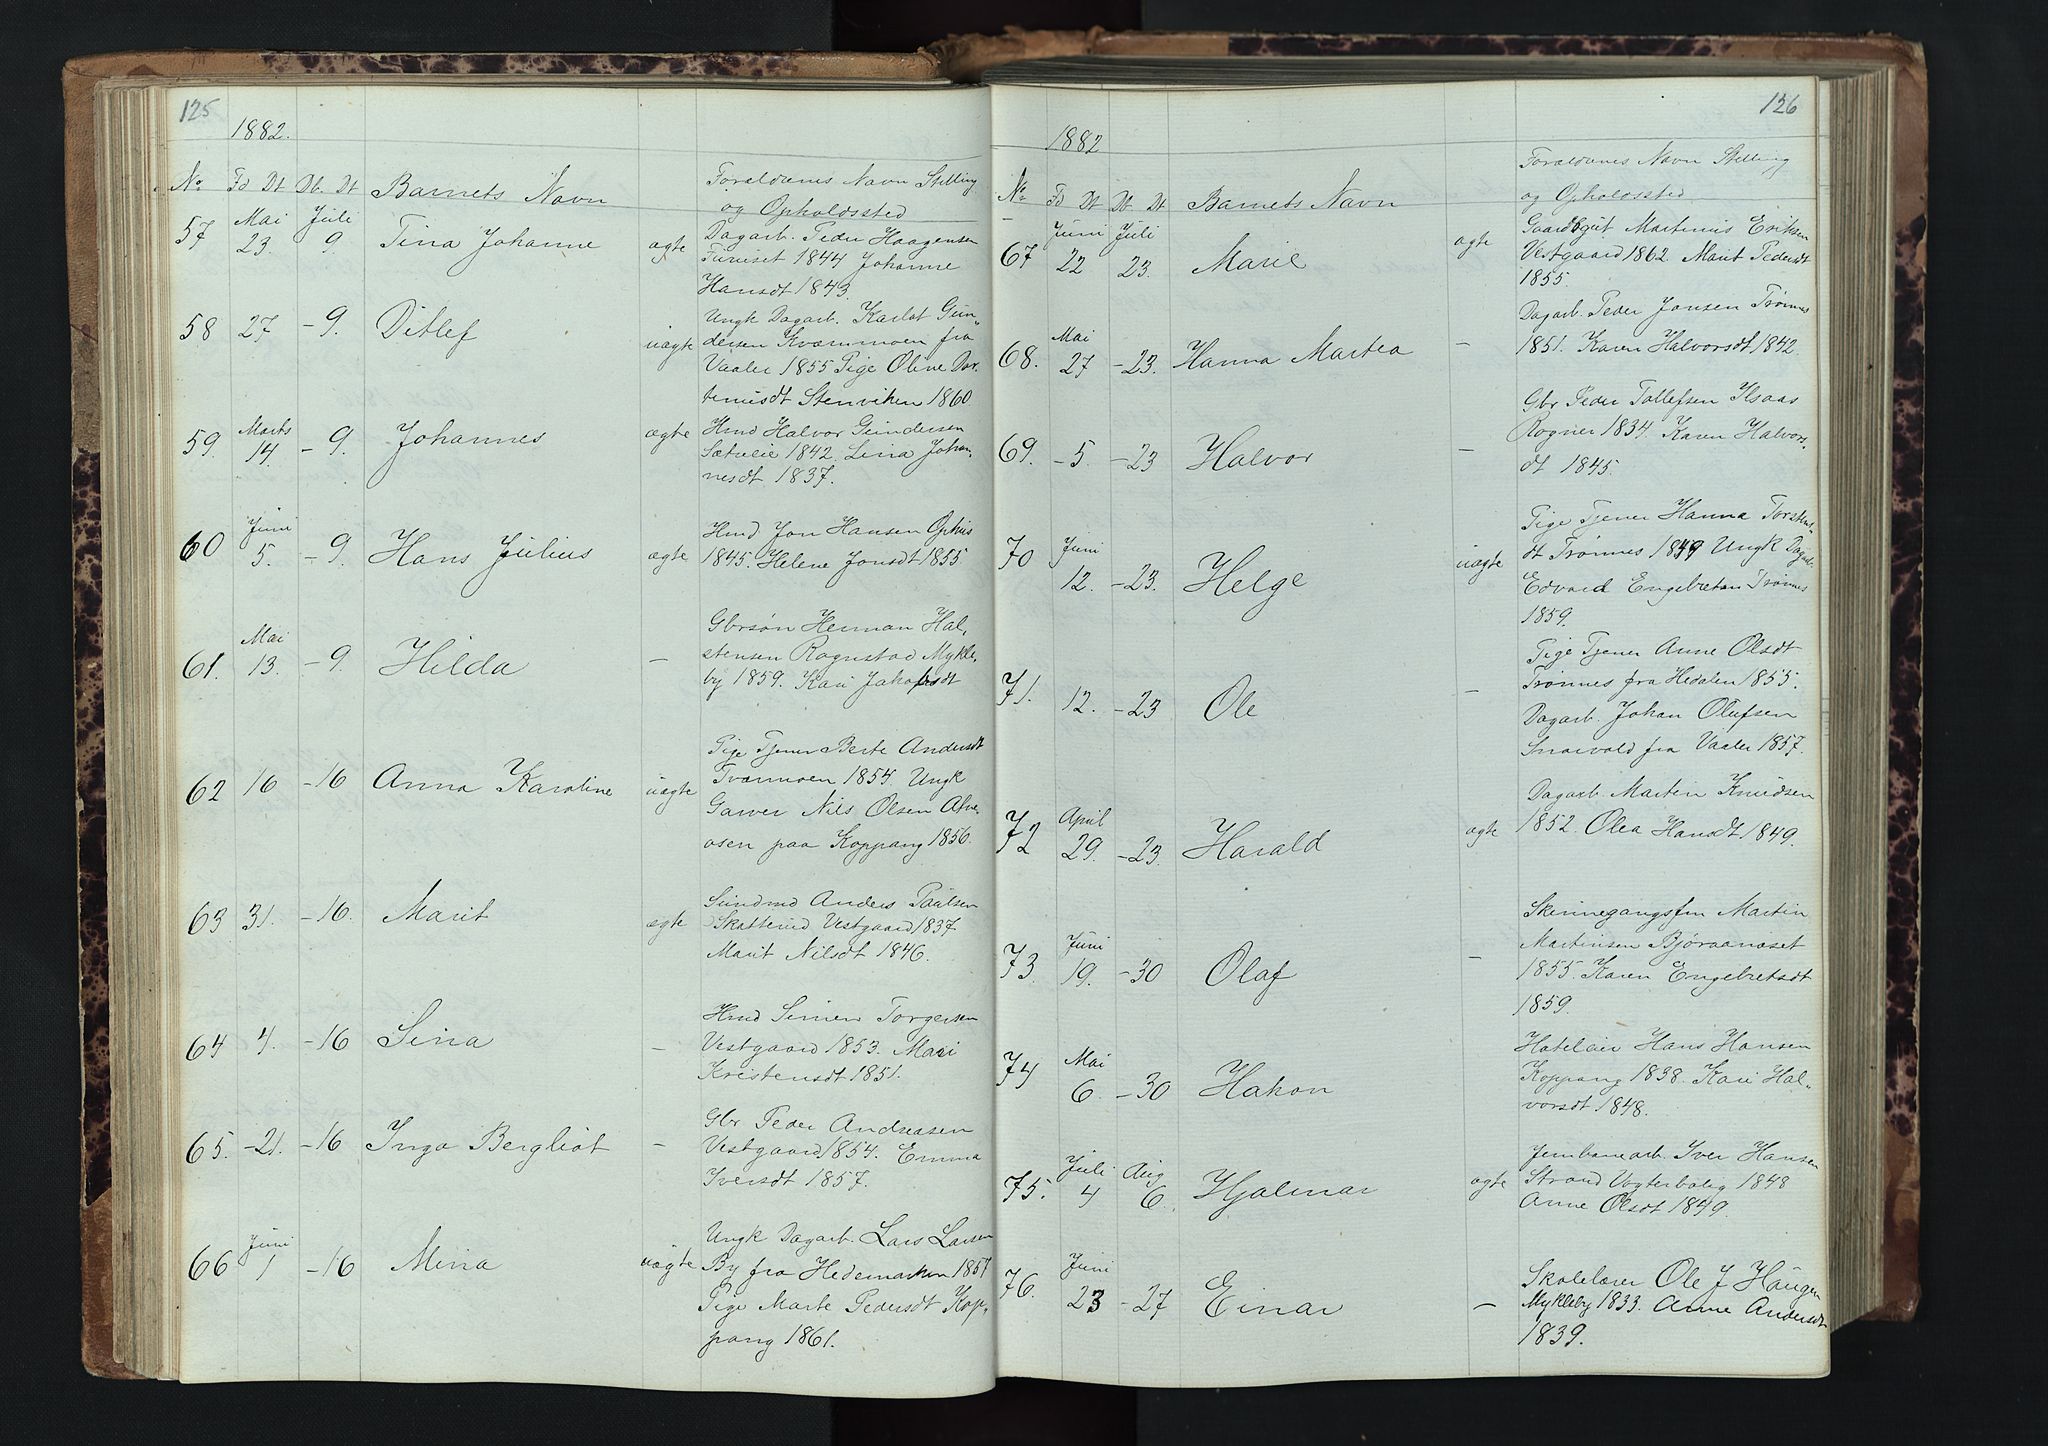 125
1882.
No Fd Dt Db. Dt Barnets Navn Forældrenes Navn Stilling
og Opholdssted
57 Mai 23. Juli 9 Tina Johanne ægte Dagarb. Peder Haagensen
Furuset 1844 Johanne
Hansdt 1843.
58 27 - 9. Ditlef uægte Ungk Dagarb. Karlot Gun-
dersen Kvæmmoen fra
Vaaler 1855 Pige Oline Mor-
tensdt Stenviken 1860
59. Marts 14. - 9. Johannes ægte Hmd Halvor Gundersen
Sætreeie 1842. Lina Johan-
nesdt 1837.
60 Juni 5. - 9. Hans Julius ægte Hmd Jon Hansen Ophus
1845. Helene Jonsdt 1855
61. Mai 13. - 9. Hilda - Gbrsøn Herman Hal-
stensen Rognstad Mykle-
by 1859. Kari Jakobsdt
62 16 - 16 Anna Karoline uægte Pige Tjener Berte Andersdt
Tvænmoen 1854. Ungk
Garver Nils Olsen Atne-
osen paa Koppang 1856.
63 31. - 16. Marit ægte Sundmd Anders Paulsen
Skatterud Vestgaard 1837
Marit Nilsdt 1846.
64 4. - 16 Sina - Hmd Simen Torgersen
Vestgaard 1853. Mari
Kristensdt 1851.
65. - 21. - 16 Inga Bergliot - Gbr Peder Andreasen
Vestgaard 1854. Emma
Iversdt 1857.
66 Juni 1 - 16 Mina uægte Ungk Dagarb. Lars Larsen
By fra Hedemarken 1857
Pige Marte Pedersdt Kop-
pang 1861.
126
1882
No Fd Dt Db. Dt Barnets Navn Forældrenes Navn Stilling
og Opholdssted
67 Juni 22 Juli 23. Marie ægte Gaardbgut Martinus Eriksen
Vestgaard 1862 Marit Pedersdt
1855.
68. Mai 27 - 23. Hanna Martea - Dagarb. Peder Jonsen Trønnes
1851. Karen Halvorsdt 1842.
69. - 5. - 23 Halvor - Gbr Peder Tollefsen Ilsaas
Rogner 1834. Karen Halvors-
dt 1845.
70 Juni 12. - 23. Helge uægte Pige Tjener Hanna Torstens-
dt Trønnes 1849 Ungk Dagarb.
Edvard Engebretsen Trønnes
1859.
71. 12. - 23 Ole - Pige Tjener Anne Olsdt
Trønnes fra Hedalen 1855.
Dagarb. Johan Olufsen
Snarvold fra Vaaler 1857.
72 April 29. - 23. Harald ægte Dagarb. Martin Knudsen
1852. Olea Hansdt 1849.
73. Juni 19. - 30 Olaf - Skinnegangsfm Martin
Martinsen Bjøraanæset
1855. Karen Engebretsdt
1859.
74 Mai 6. - 30 Hakon - Hoteleier Hans Hansen
Koppang 1838. Kari Hal-
vorsdt 1848.
75. Juli 4 Aug 6. Hjalmar ægte Jernbanearb. Iver Hansen
Strand Vogterbolig 1848
Anne Olsdt 1849.
76. Juni 23 - 27 Einar - Skolelærer Ole J Haugen
Mykleby 1833. Anne Andersdt
1839.